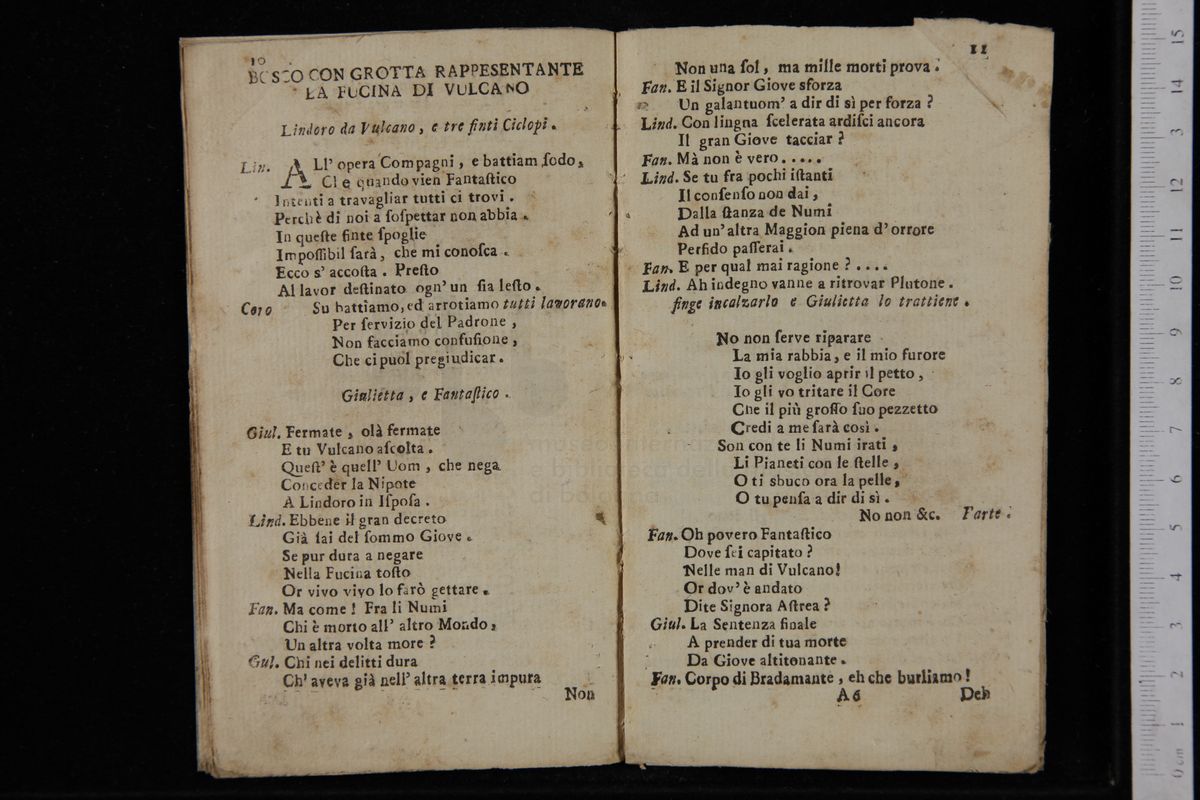 10
BOSCO CON GROTTA RAPPESENTANTE
LA FUCINA DI VULCANO
Lindoro da Vulcano, e tre finti Ciclopi.
Lin. ALl' opera Compagni, e battiam ſodo,
Cl e quando vien Fantaſtico
Intenti a travagliar tutti ci trovi.
Perchè di noi a ſoſpettar non abbia.
In queſte finte ſpoglie
Impoſſibil ſarà, che mi conoſca.
Ecco s' accoſta. Preſto
Al lavor deſtinato ogn' un ſia leſto.
Coro Su battiamo, ed arrotiamo tutti lavorano.
Per ſervizio del Padrone,
Non facciamo confuſione,
Che ci puol pregiudicar.
Giulietta, e Fantaſtico.
Giul. Fermate, olà fermate
E tu Vulcano aſcolta.
Queſt' è quell' Uom, che nega
Conceder la Nipote
A Lindoro in Iſpoſa.
Lind. Ebbene il gran decreto
Già ſai del ſommo Giove.
Se pur dura a negare
Nella Fucina toſto
Or vivo vivo lo farò gettare.
Fan. Ma come! Fra li Numi
Chi è morto all' altro Mondo,
Un altra volta more?
Gul. Chi nei delitti dura
Ch' aveva già nell' altra terra impura
Non
11
Non una ſol, ma mille morti prova.
Fan. E il Signor Giove sforza
Un galantuom' a dir di sì per forza?
Lind. Con lingna ſcelerata ardiſci ancora
Il gran Giove tacciar?
Fan. Mà non è vero.....
Lind. Se tu fra pochi iſtanti
Il conſenſo non dai,
Dalla ſtanza de Numi
Ad un' altra Maggion piena d' orrore
Perfido paſſerai.
Fan. E per qual mai ragione?....
Lind. Ah indegno vanne a ritrovar Plutone.
finge incalzarlo e Giulietta lo trattiene.
No non ſerve riparare
La mia rabbia, e il mio furore
Io gli voglio aprir il petto,
Io gli vo tritare il Core
Che il più groſſo ſuo pezzetto
Credi a me ſarà così.
Son con te li Numi irati,
Li Pianeti con le ſtelle,
O ti sbuco ora la pelle,
O tu penſa a dir di sì.
No non &c. Parte.
Fan. Oh povero Fantaſtico
Dove ſei capitato?
Nelle man di Vulcano!
Or dov' è andato
Dite Signora Aſtrea?
Giul. La Sentenza finale
A prender di tua morte
Da Giove altitonante.
Fan. Corpo di Bradamante, eh che burliamo!
A6 Deh